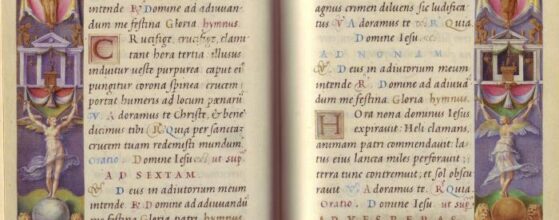 intende R Domine ad adiuuan-
dum me festina Gloria hymnus.
Crucifige, crucifige, clami
tant hora tertia: illusus
induitur ueste purpurea caput ei
pungitur corona spinea: crucem
portat humeris ad locum pœnarū
V Adoramus te Christe, & bene
dicimus tibi R Quia per sanctā
crucem tuam redemisti mundum
Oratio. Domine Iesu et ut sup.
AD SEXTAM.
V Deus in adiutorium meum
intende R Domine ad adiuuandū
dum me festina Gloria patri hymnus
agnus crimen diluens sic ludifica
tus V Adoramus te R Quia.
Domine Iesu.
AD NONAM
V Deus in adiutorium meum
intende R Domine ad adiuuā
dum me festina Gloria hymnus.
Hora nona dominus Iesus
expirauit: Heli clamans,
animam patri commendauit: la
tus eius lancea miles perforauit
terra tunc contremuit, et sol obscu
rauit V Adoramus te. R Quia
Oratio Domine Iesu. ut sup.
AD VESPERAS